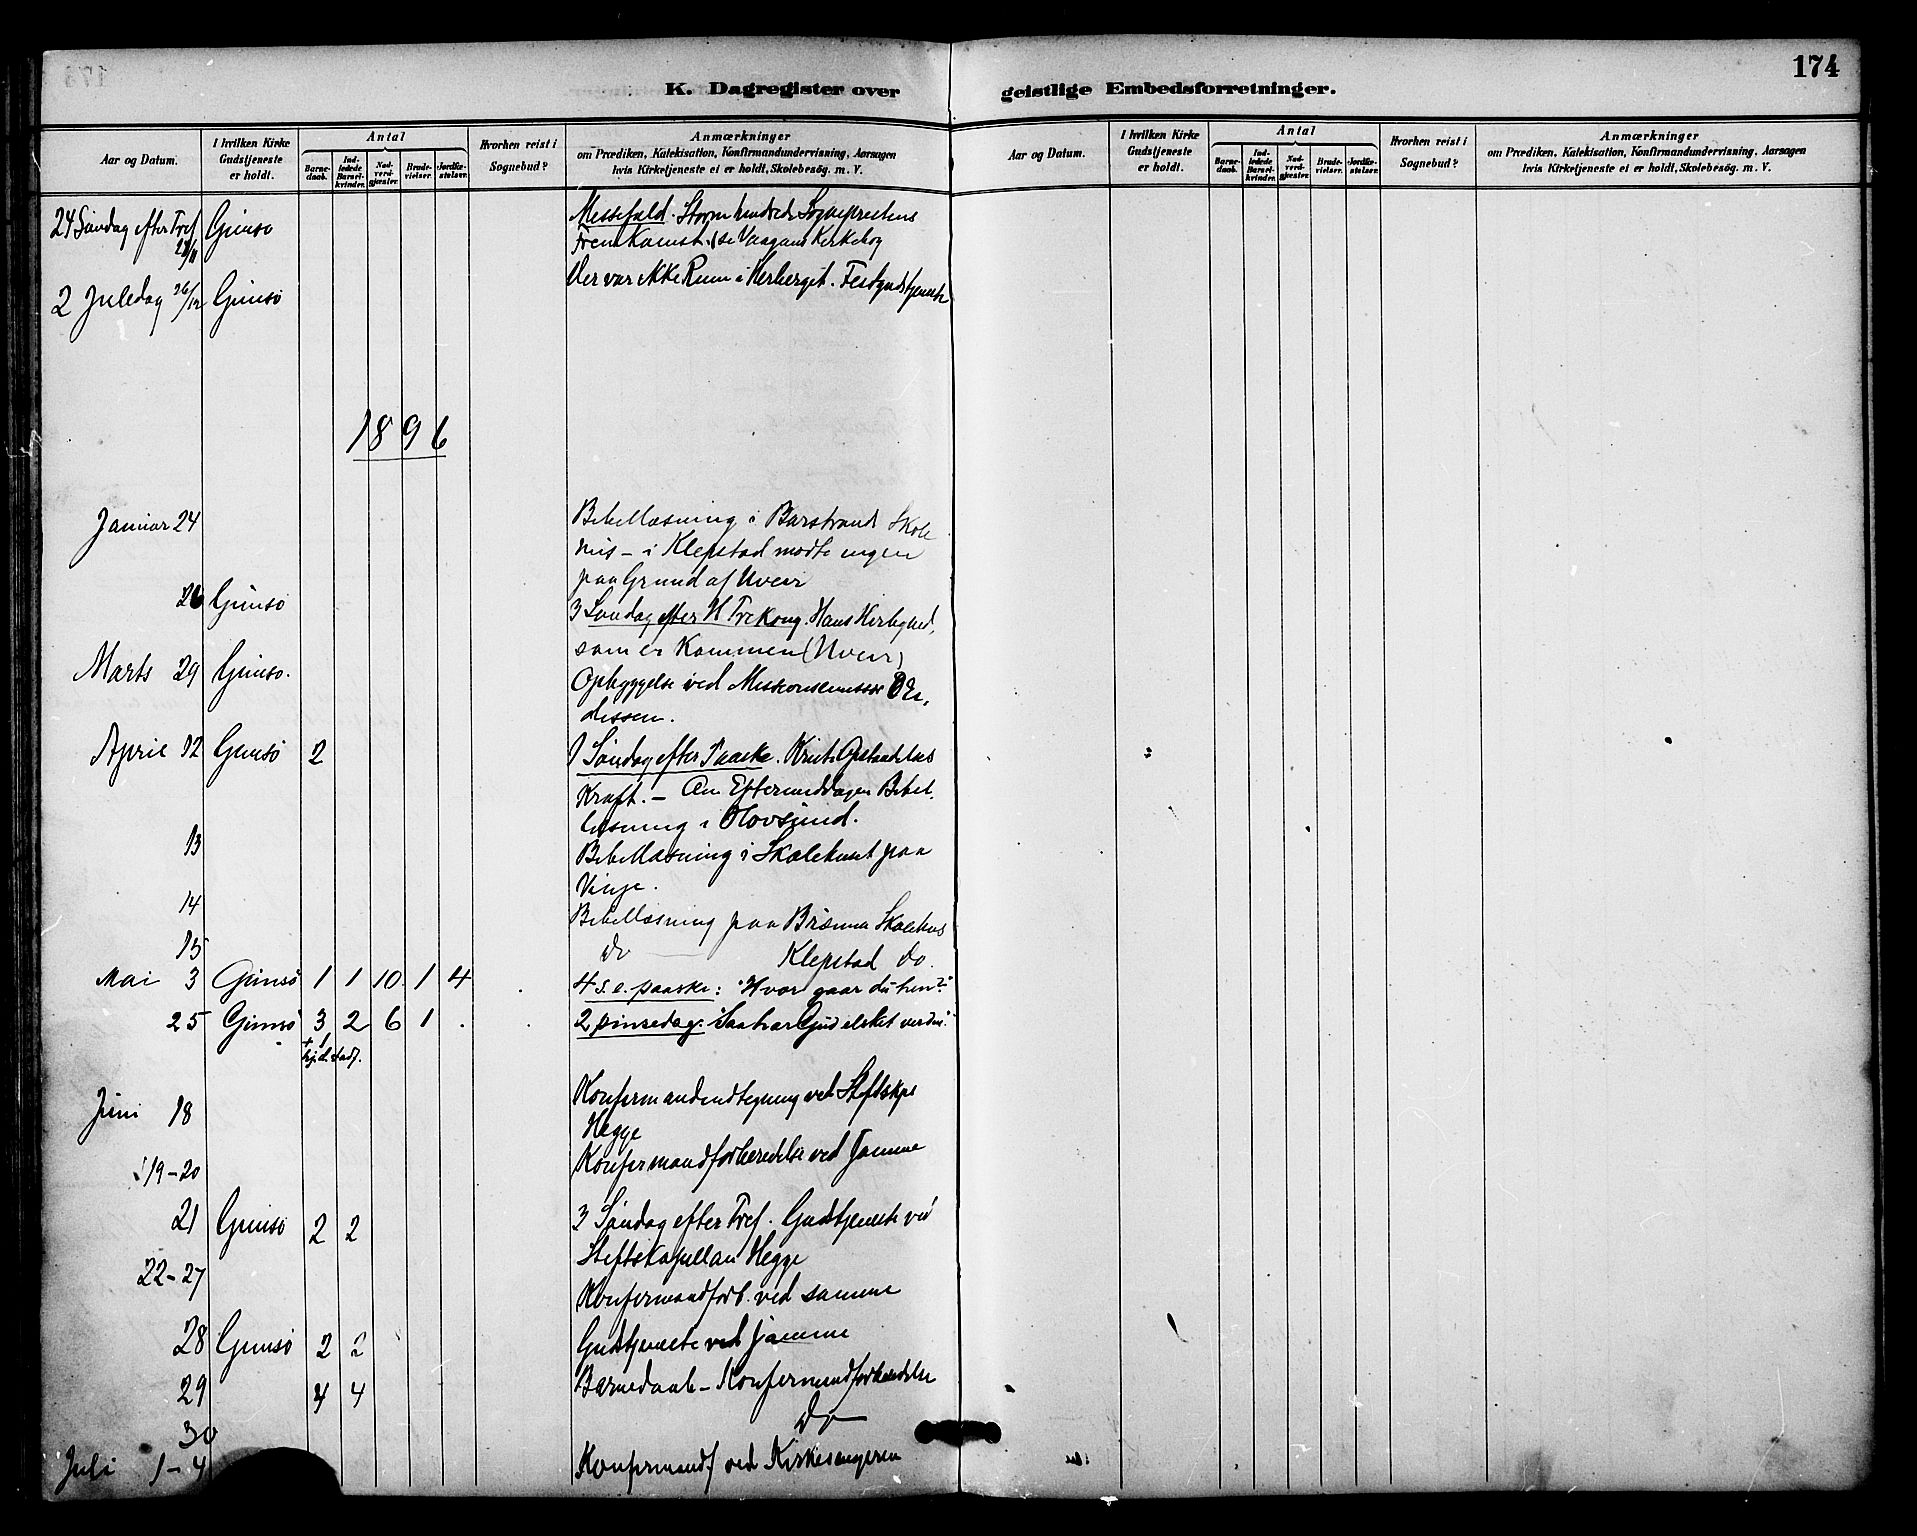 174
K. Dagregister over geistlige Embedsforretninger.
Aar og Datum. I hvilken Kirke Gudstjeneste er holdt. Antal Barnedaab. Indledede Barselkvinder. Nadverdgjæster. Brudevielser. Jordfæstelser. Hvorhen reist i Sognebud? Anmærkninger om Prædiken, Katekisation, Konfirmandundervisning, Aarsagen hvis Kirketjeneste ei er holdt, Skolebesög. m. V.
Aar og Datum. I hvilken Kirke Gudstjeneste er holdt. Antal Barnedaab. Indledede Barselkvinder. Nadverdgjæster. Brudevielser. Jordfæstelser. Hvorhen reist i Sognebud? Anmærkninger om Prædiken, Katekisation, Konfirmandundervisning, Aarsagen hvis Kirketjeneste ei er holdt, Skolebesög. m. V.
24 Søndag efter Tref Gimsø Messefald. Storm hindrede Sognepræstens
Fremkomst. (se Vaagans Kirkebog
2 Juledag 26/12 Gimsø Der var ikke Rum i Herberget. Festgudstjeneste
1896
Januar 24 Bibellæsning i Barstrand Skole
hus – i Klepstad mødte ingen
paa Grund af Uveir
26 Gimsø 3 Søndag efter H Trekong. Hans Herlighed,
som er kommen (Uveir)
Marts 29 Gimsø. Opbyggelse ved
April 12 Gimsø 2 1 Søndag efter Paaske. Krists Opstandelses
Kraft. – Om Eftermiddagen Bibel
læsning i Olovsund.
13 Bibellæsning i Skolehuset paa
Vinje.
14 Bibellæsning paa Brenna Skolehus
15 Do Klepstad do.
Mai 3 Gimsø 1 1 10 1 4 4 s. e. paaske: "Hvor gaar du hen?"
25 Gimsø 3 2 6 1 . 2 pinsedag. "Saa har Gud elsket verden."
+ 1
hj.d. stadf.
Juni 18 Konfirmandindtegning ved Stiftskpl
Hegge
19–20 Konfirmandforberedelse ved samme
21 Gimsø 2 2 3 Søndag efter Tref. Gudstjeneste ved
Stiftskapellan Hegge
22–27 Konfirmandforb. ved samme
28 Gimsø 2 2 Gudstjeneste ved samme
29 4 4 Barnedaab – Konfirmandforberedelse
30 Do
Juli 1–4 Konfirmandf ved Kirkesangeren